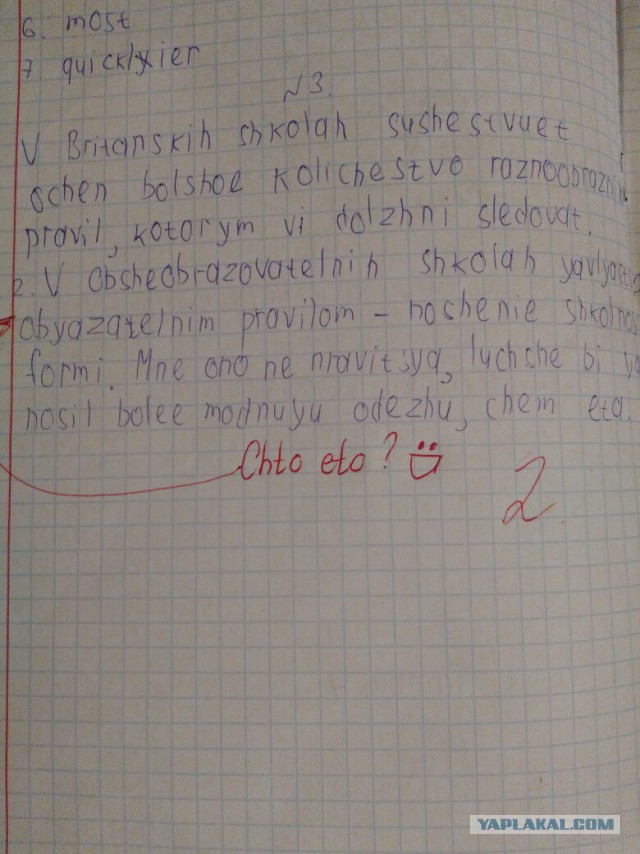 6. most
7 quicklyxier
№3.
V Britanskih shkolah sushestvuet
ochen bolshoe kolichestvo raznoobraznih
pravil, kotorym vi dolzhni sledovat.
2. V obsheobrazovatelnih shkolah
obyazatelnim pravilom - noshenie
formi. Mne ono ne nravitsya, luchshe bi ya
nosil bolee modnuyu odezhu, chem eta.
Chto eto?
2
YAPLAKAL.COM